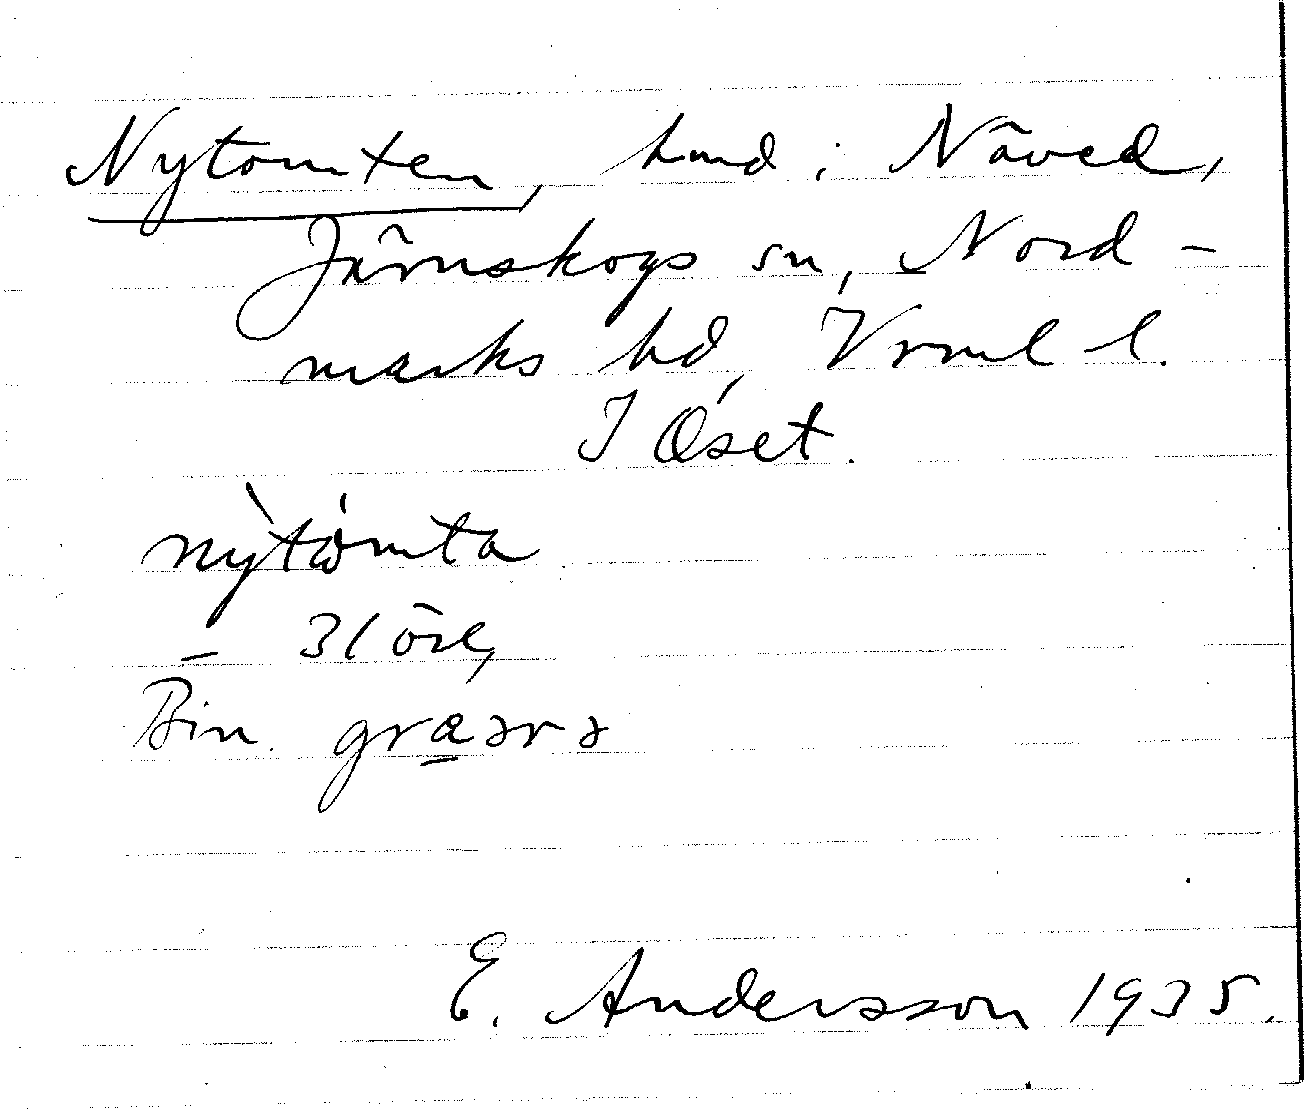 Nytomten, hmd i Näved,
Järnskogs sn, Nord-
marks hd, Vrml l.
I Öset.
nỳtómta
– 31 öre,
Bin. græara
E. Andersson 1935.